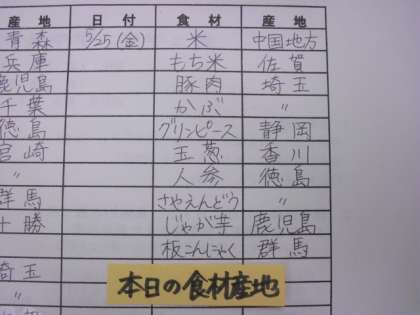 産地 日付 食材 産地
青森 5/25(金) 米 中国地方
兵庫 もち米 佐賀
鹿児島 豚肉 埼玉
千葉 かぶ 〃
徳島 グリンピース 静岡
宮崎 玉葱 香川
〃 人参 徳島
群馬 さやえんどう 〃
十勝 じゃが芋 鹿児島
板こんにゃく 群馬
埼玉
本日の食材産地
〃